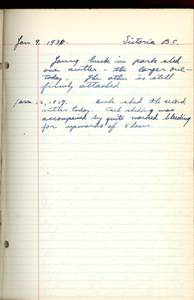 Jan 9, 1938. Victoria B.C.
Jenny buck in park shed
one antler - the larger one -
today. The other is still
firmly attached
Jan. 12, 1938. Buck shed the second
antler today. Each shedding was
accompanied by quite marked bleeding
for upwards of hours.